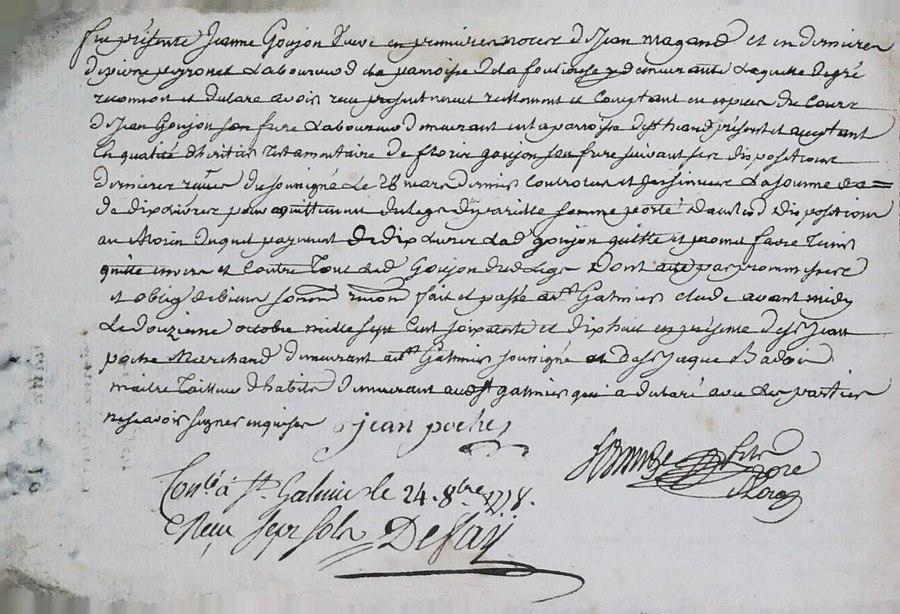 fut présente Jeanne Goujon veuve en premieres noces d Jean magand et en dernieres
d pierre peyronet Laboureur d la parroisse d la fouliouse y demeurante Laquelle d gré
reconnoit et declare avoir receu presentement reellement et Comptant en especes de Cours
d Jean Goujon son frere Laboureur demeurant en la parroisse d présent et aceptant
En qualité dheritier Testamentaire de fleurie goujon son frere suivant ses dispositions
dernieres receues du soussigné Le 28 mars dernier Controllées et Insinuées La somme de
de dix Livres pour acquittement du legs d pareille somme porté dites dispositions
au moien duquel payement de dix Livres Lad goujon quitte et promet faire Tenir
quitte envers et Contre Tous Led Goujon dud Legs Dont acte par prommesses
et oblig de biens soumn renon fait et passé a St Galmier etude avant midy
Le douzieme octobre mille sept Cent soixante et dix huit en présence de sr Jean
poche Marchand demeurant aud St Galmier soussigné et de sr Jaque
maitre Tailleur dhabits demeurant aud St galmier qui a declaré avec Les parties
ne scavoir signer enquises jean poche
Conlé à St Galmier le 24. 8bre 1778.
Reçu sept sols Defay